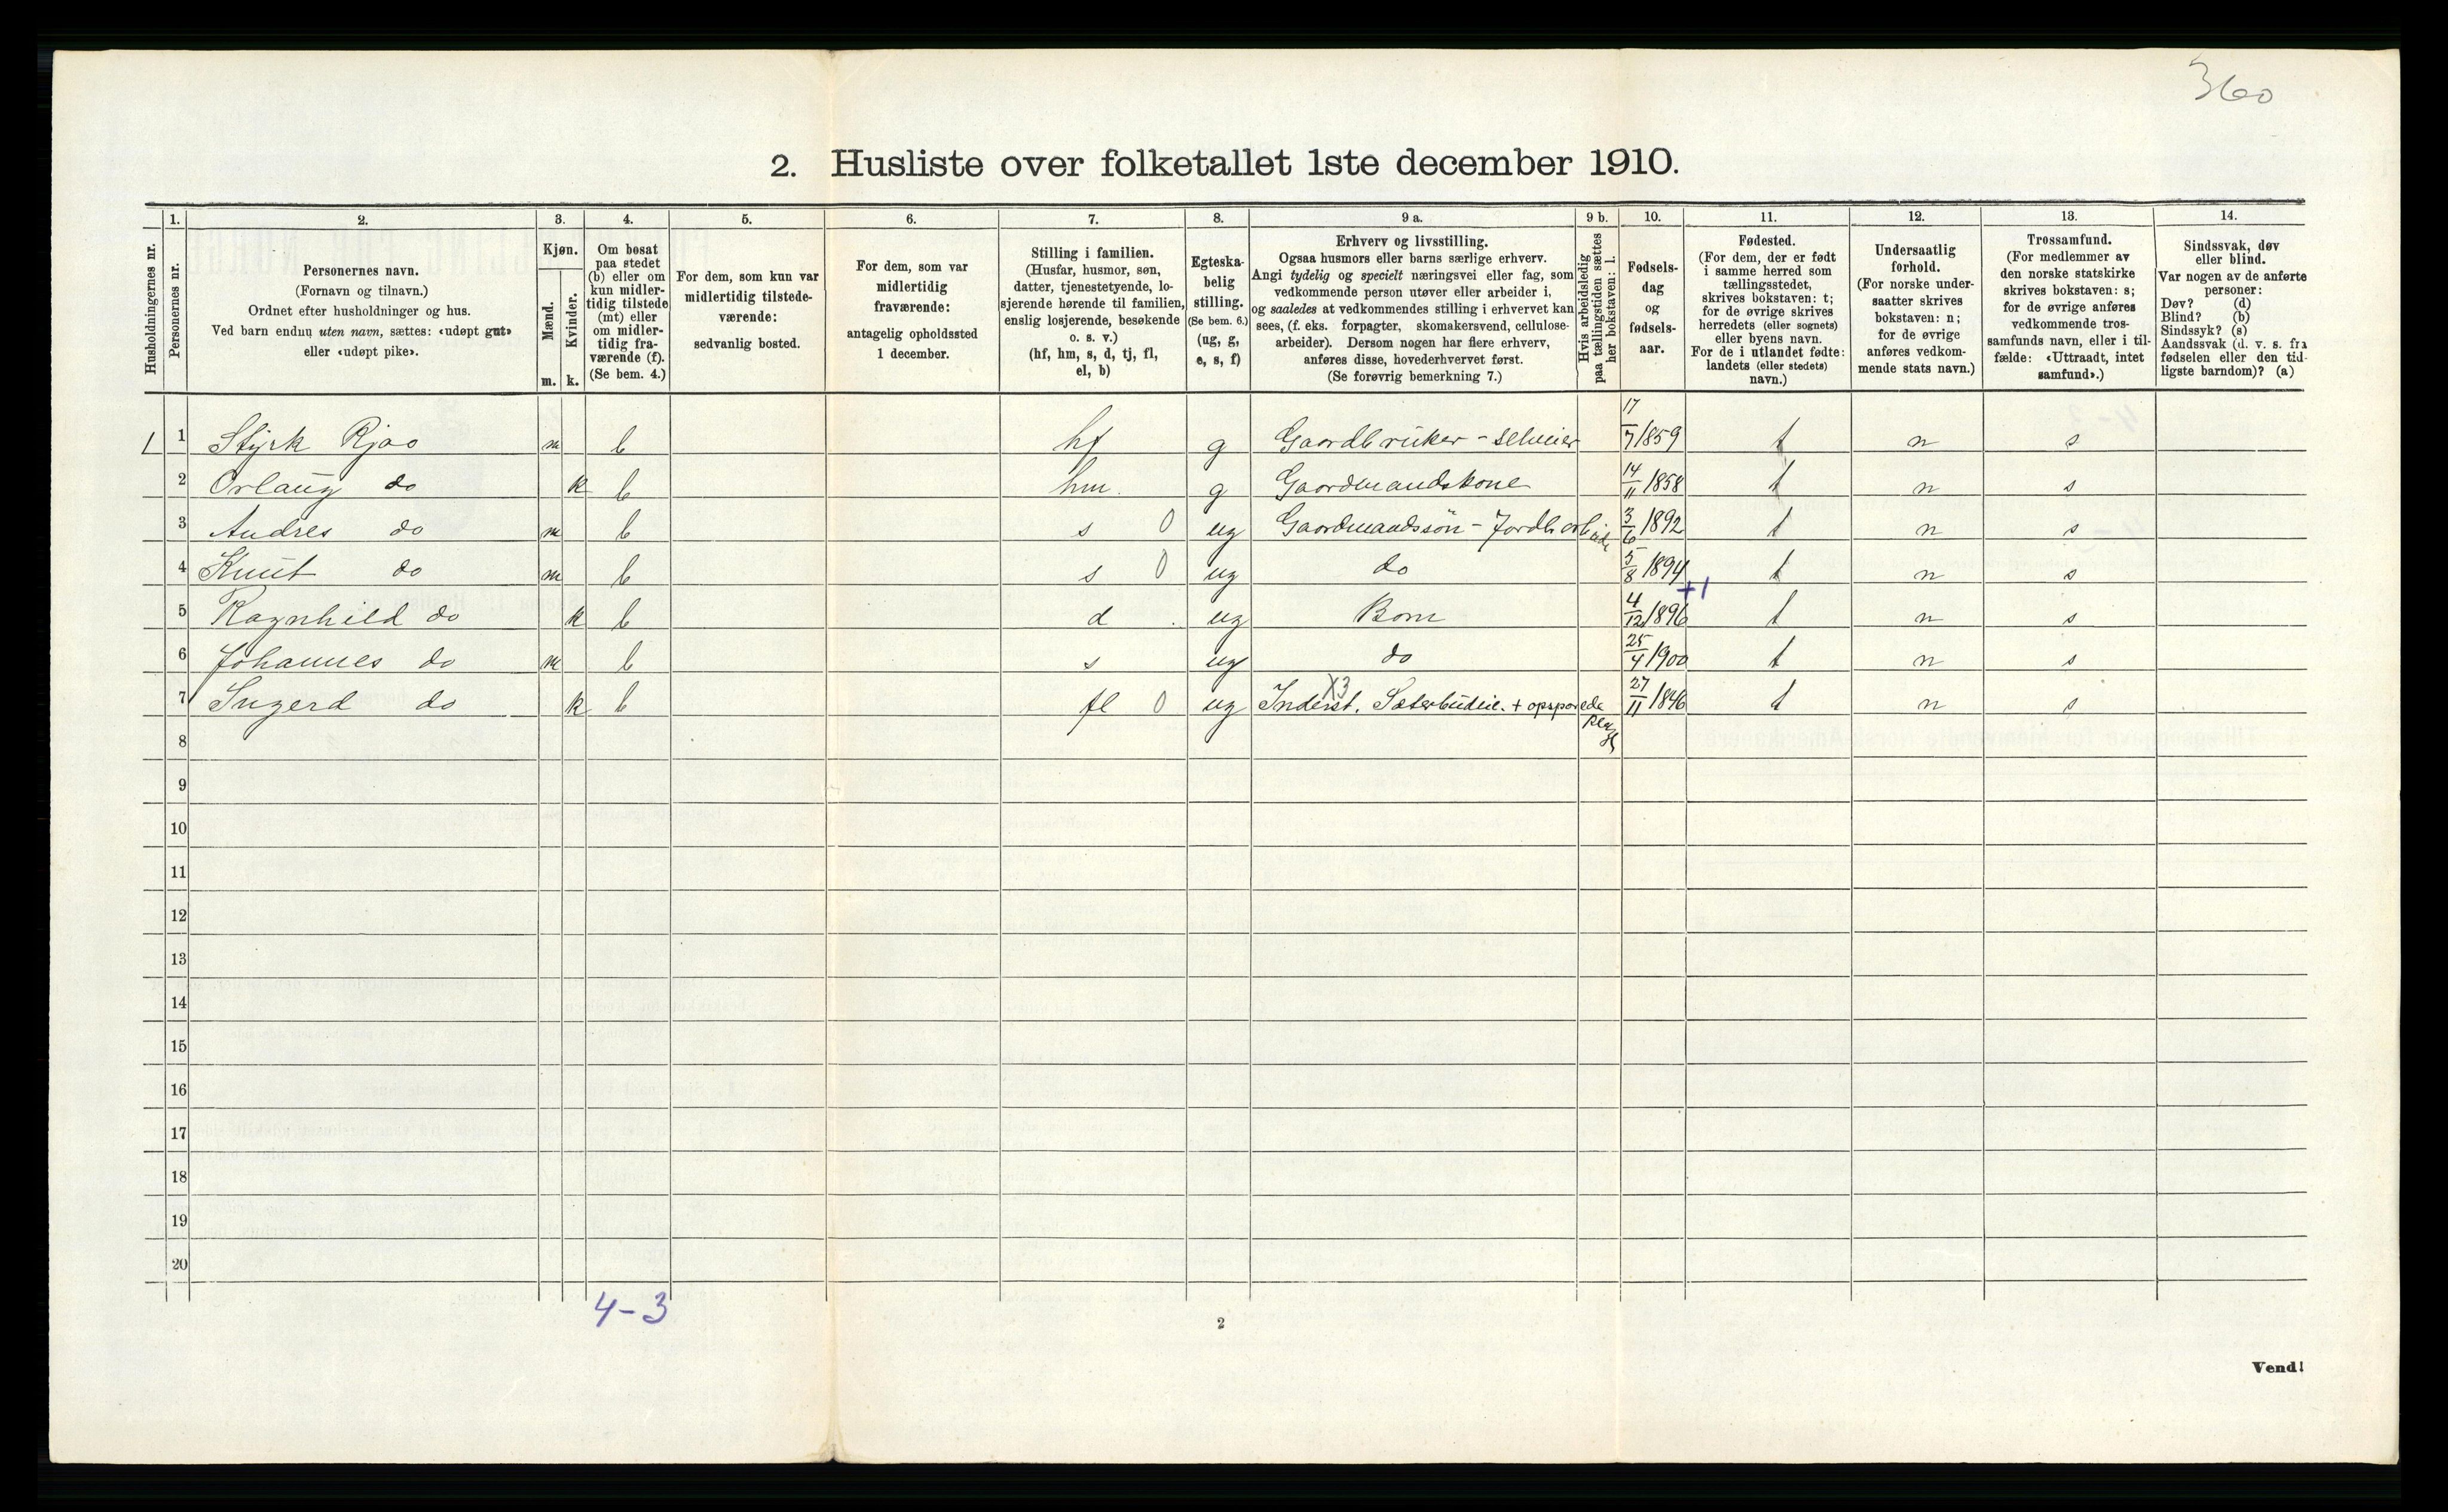 360
2. Husliste over folketallet 1ste december 1910.
Husholdningernes nr.
1.
Personernes nr.
2.
Personernes navn.
(Fornavn og tilnavn.)
Ordnet efter husholdninger og hus.
Ved barn endnu uten navn, sættes: «udøpt gut»
eller «udøpt pike».
3.
Kjøn.
Mænd.
Kvinder.
m. k.
4.
Om bosat
paa stedet
(b) eller om
kun midler-
tidig tilstede
(mt) eller
om midler-
tidig fra-
værende (f).
(Se bem. 4.)
5.
For dem, som kun var
midlertidig tilstede-
værende:
sedvanlig bosted.
6.
For dem, som var
midlertidig
fraværende:
antagelig opholdssted
1 december.
7.
Stilling i familien.
(Husfar, husmor, søn,
datter, tjenestetyende, lo-
sjerende hørende til familien,
enslig losjerende, besøkende
o. s. v.)
(hf, hm, s, d, tj, fl,
el, b)
8.
Egteska-
belig
stilling.
(Se bem. 6.)
(ug, g,
e, s, f)
9 a.
Erhverv og livsstilling.
Ogsaa husmors eller barns særlige erhverv.
Angi tydelig og specielt næringsvei eller fag, som
vedkommende person utøver eller arbeider i,
og saaledes at vedkommendes stilling i erhvervet kan
sees, (f. eks. forpagter, skomakersvend, cellulose-
arbeider). Dersom nogen har flere erhverv,
anføres disse, hovederhvervet først.
(Se forøvrig bemerkning 7.)
9 b.
Hvis arbeidsledig
paa tællingstiden sættes
her bokstaven: l.
10.
Fødsels-
dag
og
fødsels-
aar.
11.
Fødested.
(For dem, der er født
i samme herred som
tællingsstedet,
skrives bokstaven: t;
for de øvrige skrives
herredets (eller sognets)
eller byens navn.
For de i utlandet fødte:
landets (eller stedets)
navn.)
12.
Undersaatlig
forhold.
(For norske under-
saatter skrives
bokstaven: n;
for de øvrige
anføres vedkom-
mende stats navn.)
13.
Trossamfund.
(For medlemmer av
den norske statskirke
skrives bokstaven: s;
for de øvrige anføres
vedkommende tros-
samfunds navn, eller i til-
fælde: «Uttraadt, intet
samfund».)
14.
Sindssvak, døv
eller blind.
Var nogen av de anførte
personer:
Døv? (d)
Blind? (b)
Sindssyk? (s)
Aandssvak (d. v. s. fra
fødselen eller den tid-
ligste barndom)? (a)
1 1 Styrk Rjao m b hf g Gaardbruker - selveier 17/7 1859 t n s
2 Orlaug do k b hm. g Gaardmandskone 14/11 1858 t n s
3 Andres do m b s 0 ug Gaardmandssøn - Jordbarbeide 3/6 1892 t n s
4 Knut do m b s 0 ug do 5/8 1894 t n s
+1
5 Ragnhild do k b d ug Barn 4/12 1896 t n s
6 Johannes do m b s ug do 25/4 1900 t n s
X3
7 Ingerd do k b fl 0 ug Inderst. Sæterbudeie. + 27/11 1846 t n s
8
9
10
11
12
13
14
15
16
17
18
19
20
4-3
2
Vend!